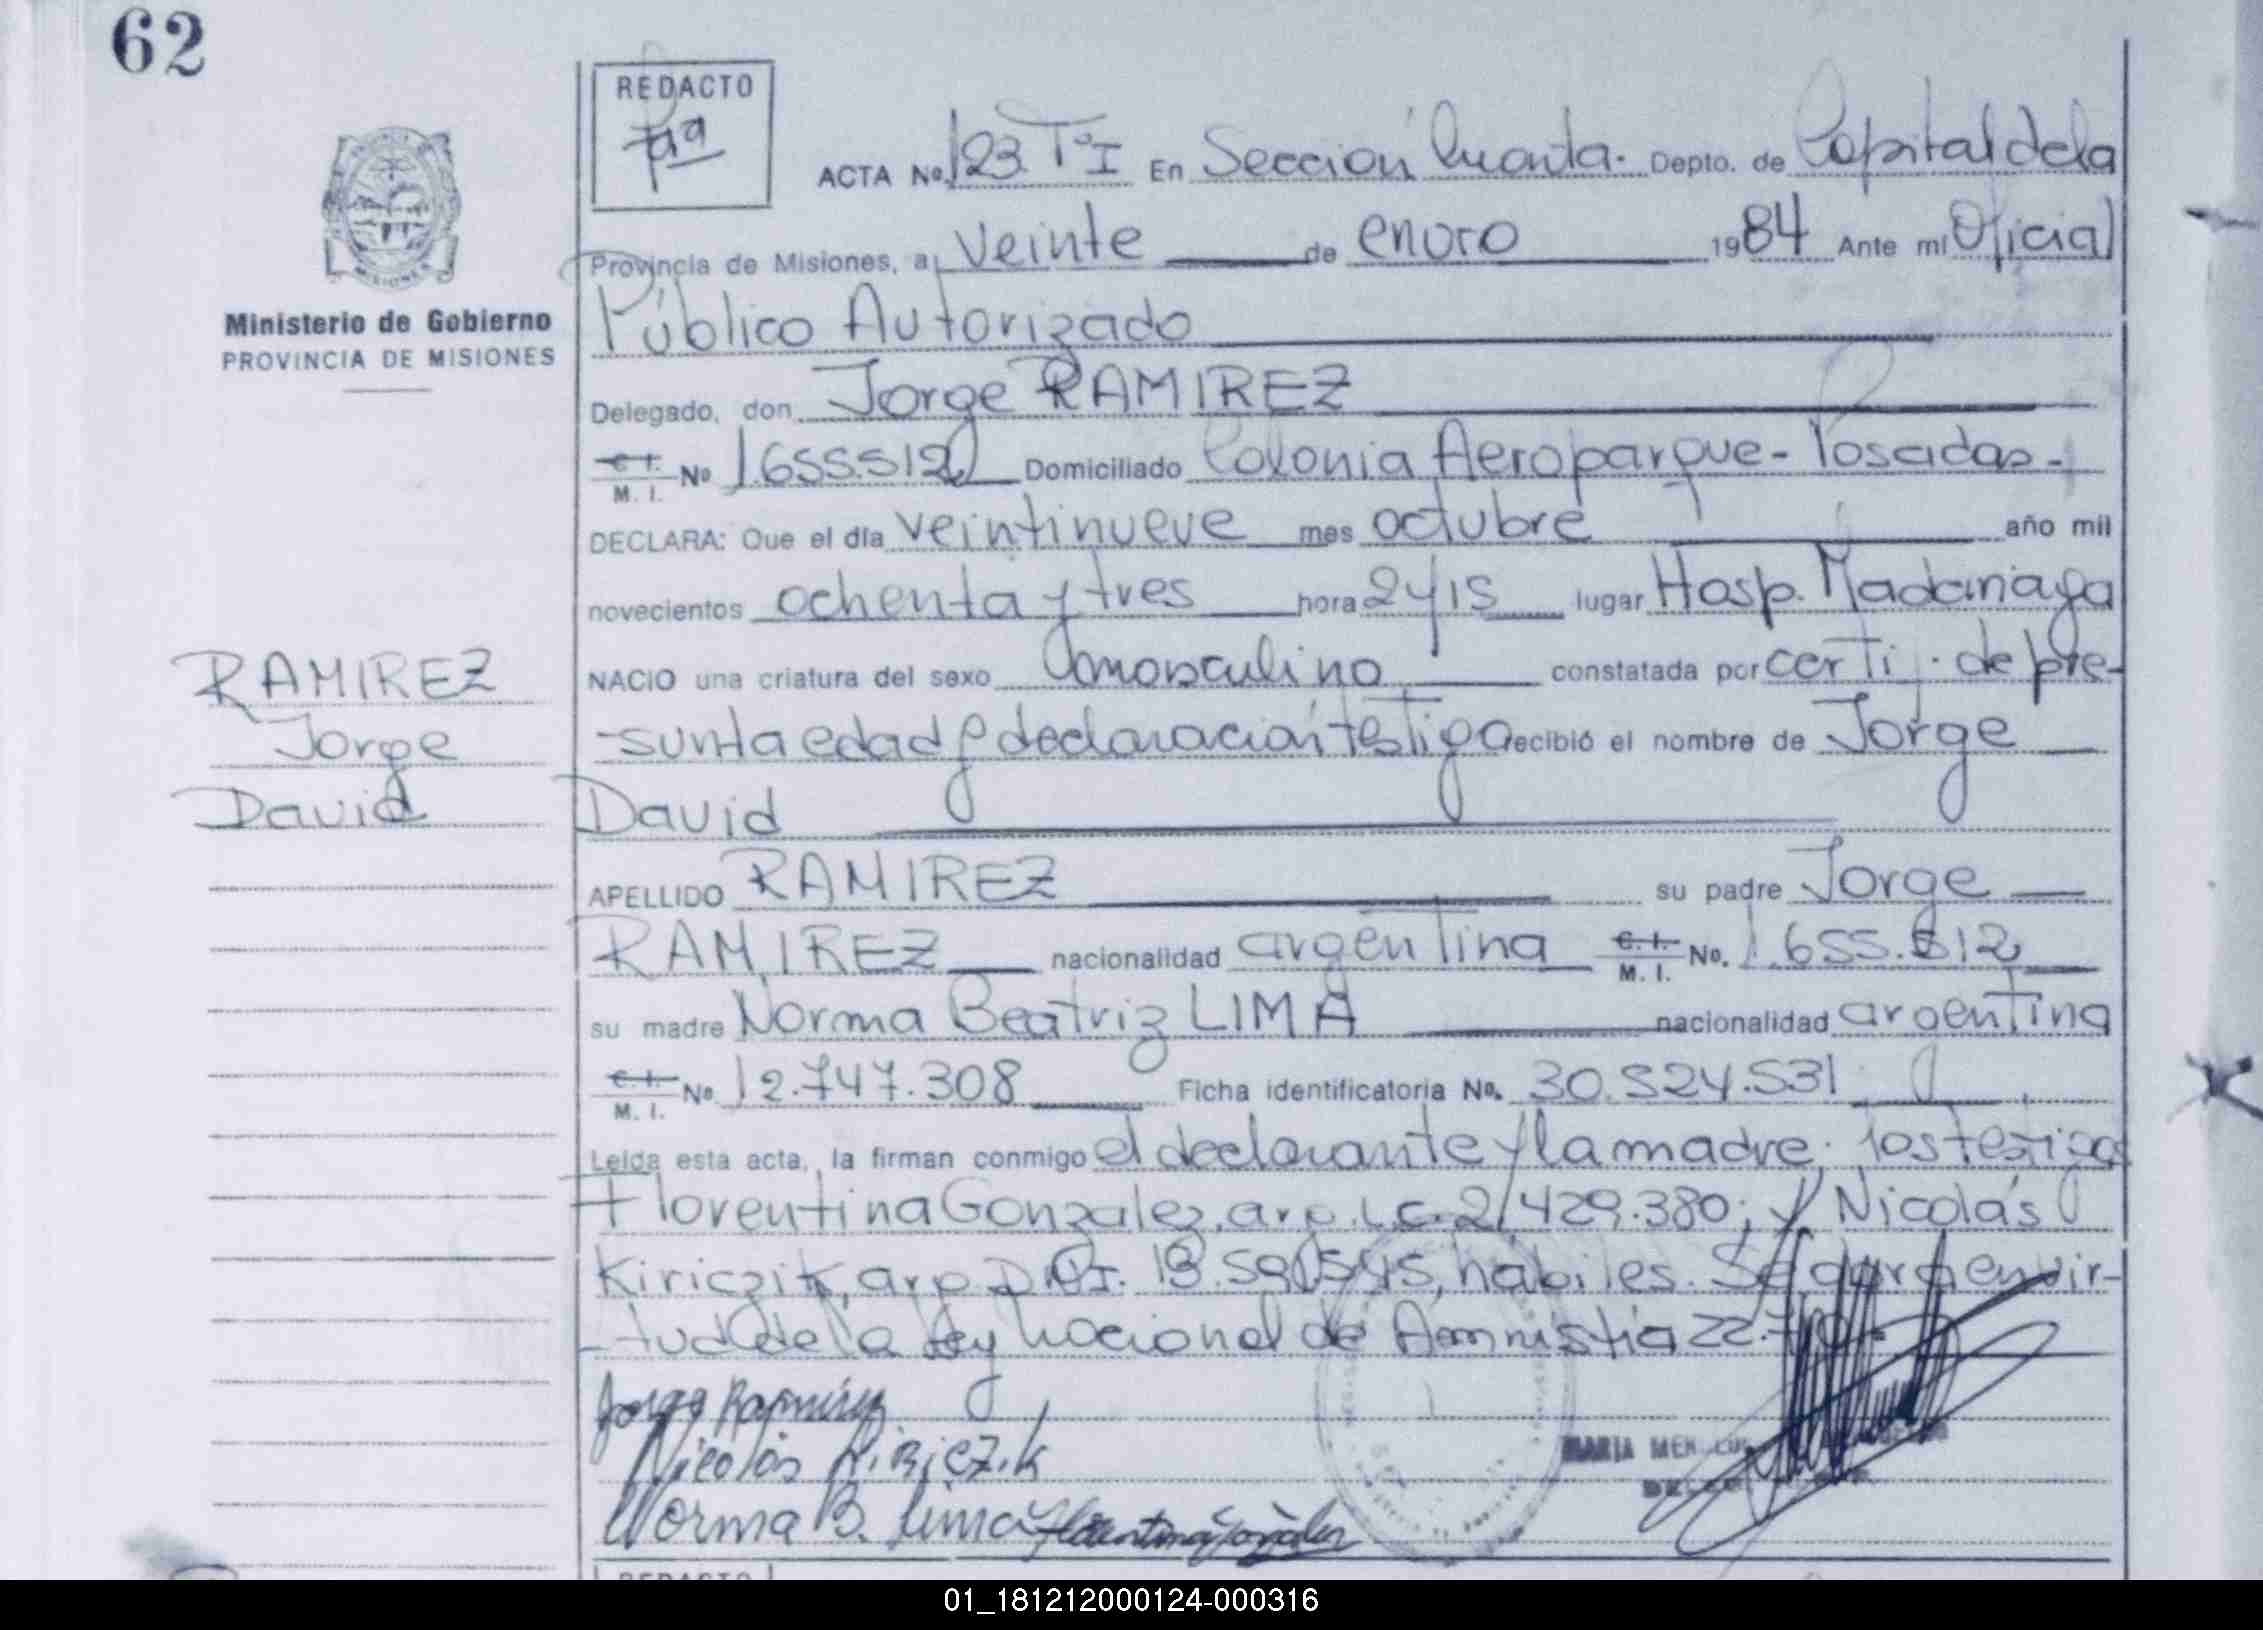 62
REDACTO
ACTA No. 123 T° I En Sección Cuarta. Depto. de Capital de la
Provincia de Misiones, a veinte de enero 1984 Ante mi Oficial
Público Autorizado
Ministerio de Gobierno
PROVINCIA DE MISIONES
Delegado, don Jorge RAMIREZ
C. I. M. I. No 1.655.512 Domiciliado Colonia Aeroparque - Posadas -
DECLARA: Que el día veintinueve mes octubre año mil
novecientos ochenta y tres hora 2 y 15 lugar Hosp. Madariaga
NACIO una criatura del sexo masculino constatada por certi. de pre-
-sunta edad y declaración testigo recibió el nombre de Jorge
David
RAMIREZ
Jorge
David
APELLIDO RAMIREZ su padre Jorge
RAMIREZ nacionalidad argentina C. I. M. I. No. 1.655.512
su madre Norma Beatriz LIMA nacionalidad argentina
C. I. M. I. No. 12.747.308 Ficha identificatoria No. 30.524.531
Leida esta acta, la firman conmigo el declarante y la madre; los testigos
Florentina Gonzalez, arg. L.C. 2/429.380; y Nicolás
Kiriczik, arg. D.N.I. hábiles. Se en vir-
-tud de la Ley Nacional de Amnistia
Jorge Ramírez
Nicolás Kiriczik
Norma B. Lima Florentina González
MARIA
REDACTO
01_181212000124-000316